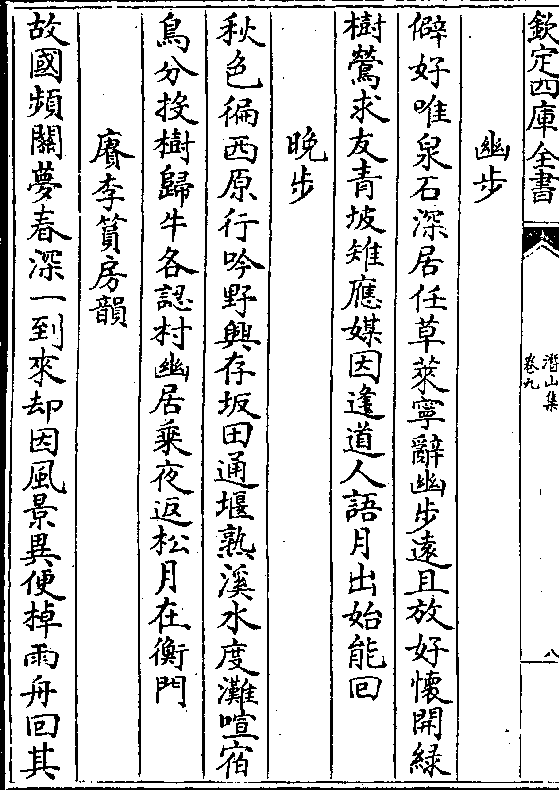 欽定四庫全書
潛山集
卷九
八
幽步
僻好唯泉石深居任草萊寧辭幽步遠且放好懷開緑
樹鶯求友青坡雉應媒因逢道人語月出始能回
晚步
秋色徧西原行吟野興存坂田通堰熟溪水度灘喧宿
鳥分投樹歸牛各認村幽居乘夜返松月在衡門
賡李篔房韻
故國頻關夢春深一到來却因風景異便棹雨舟回其